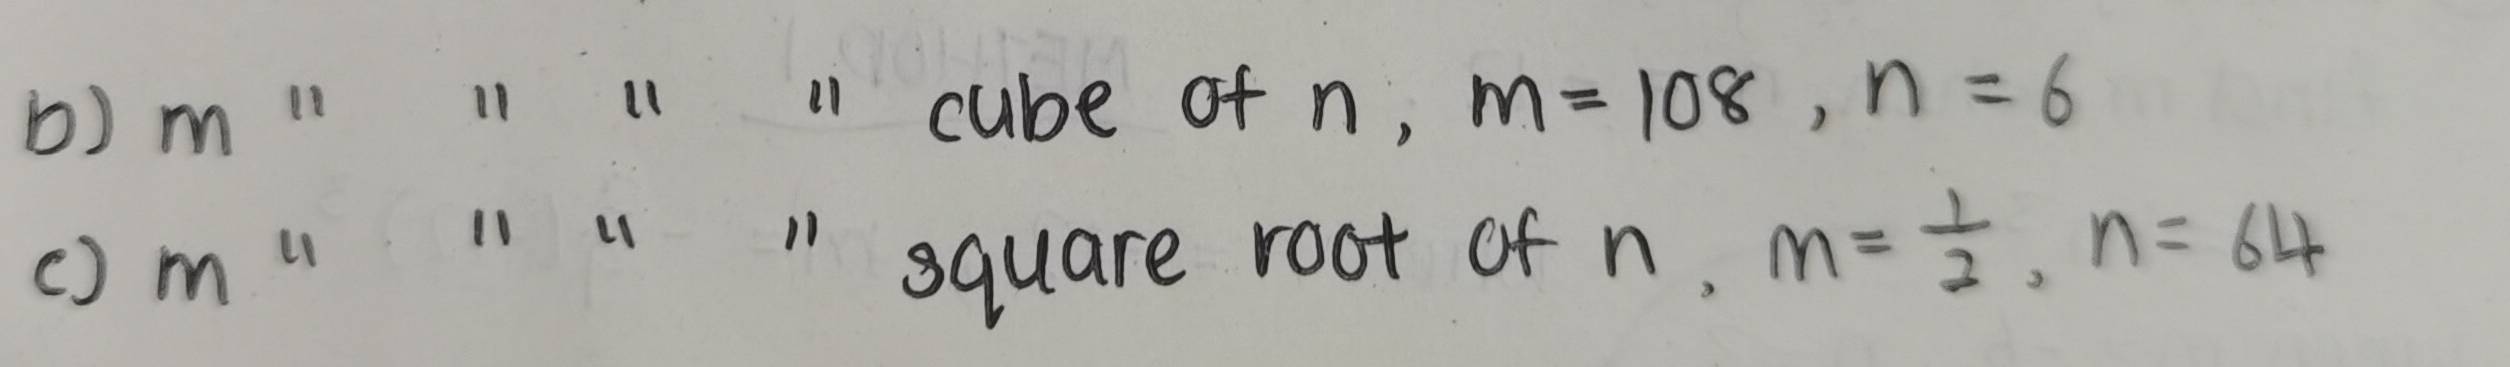 b) m " " " " cube of n, m = 108, n = 6
c) m " " " " square root of n, m = 1/2, n = 64